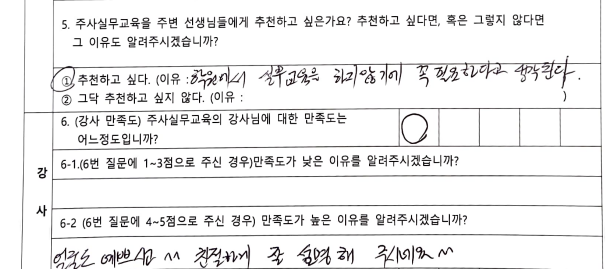 5. 주사실무교육을 주변 선생님들에게 추천하고 싶은가요? 추천하고 싶다면, 혹은 그렇지 않다면
그 이유도 알려주시겠습니까?
① 추천하고 싶다. (이유 : 학원에서 실무교육을 하지않기에 꼭 필요하다고 생각한다.
② 그닥 추천하고 싶지 않다. (이유 : )
6. (강사 만족도) 주사실무교육의 강사님에 대한 만족도는
어느정도입니까?
6-1.(6번 질문에 1~3점으로 주신 경우)만족도가 낮은 이유를 알려주시겠습니까?
강
사
6-2 (6번 질문에 4~5점으로 주신 경우) 만족도가 높은 이유를 알려주시겠습니까?
얼굴도 예쁘시고 ^^ 친절하게 잘 설명해 주시네요 ^^